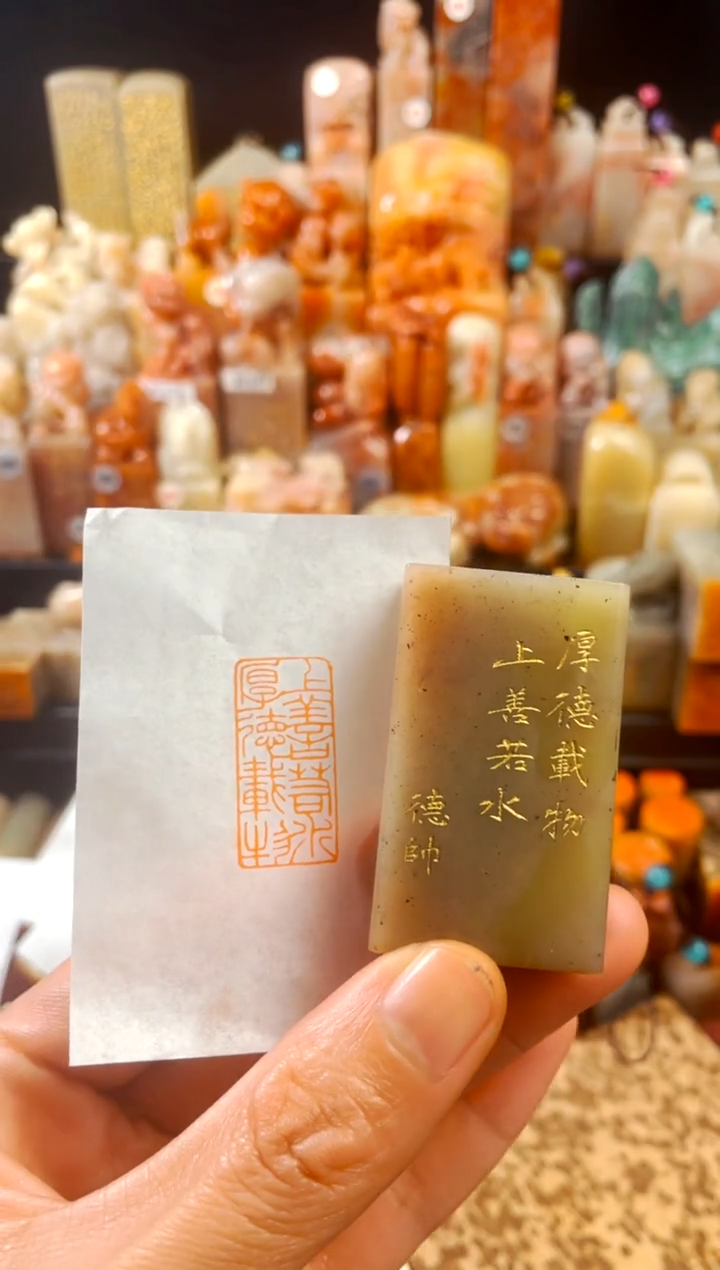 上善若水
厚德載物
厚德載物
上善若水
德帥